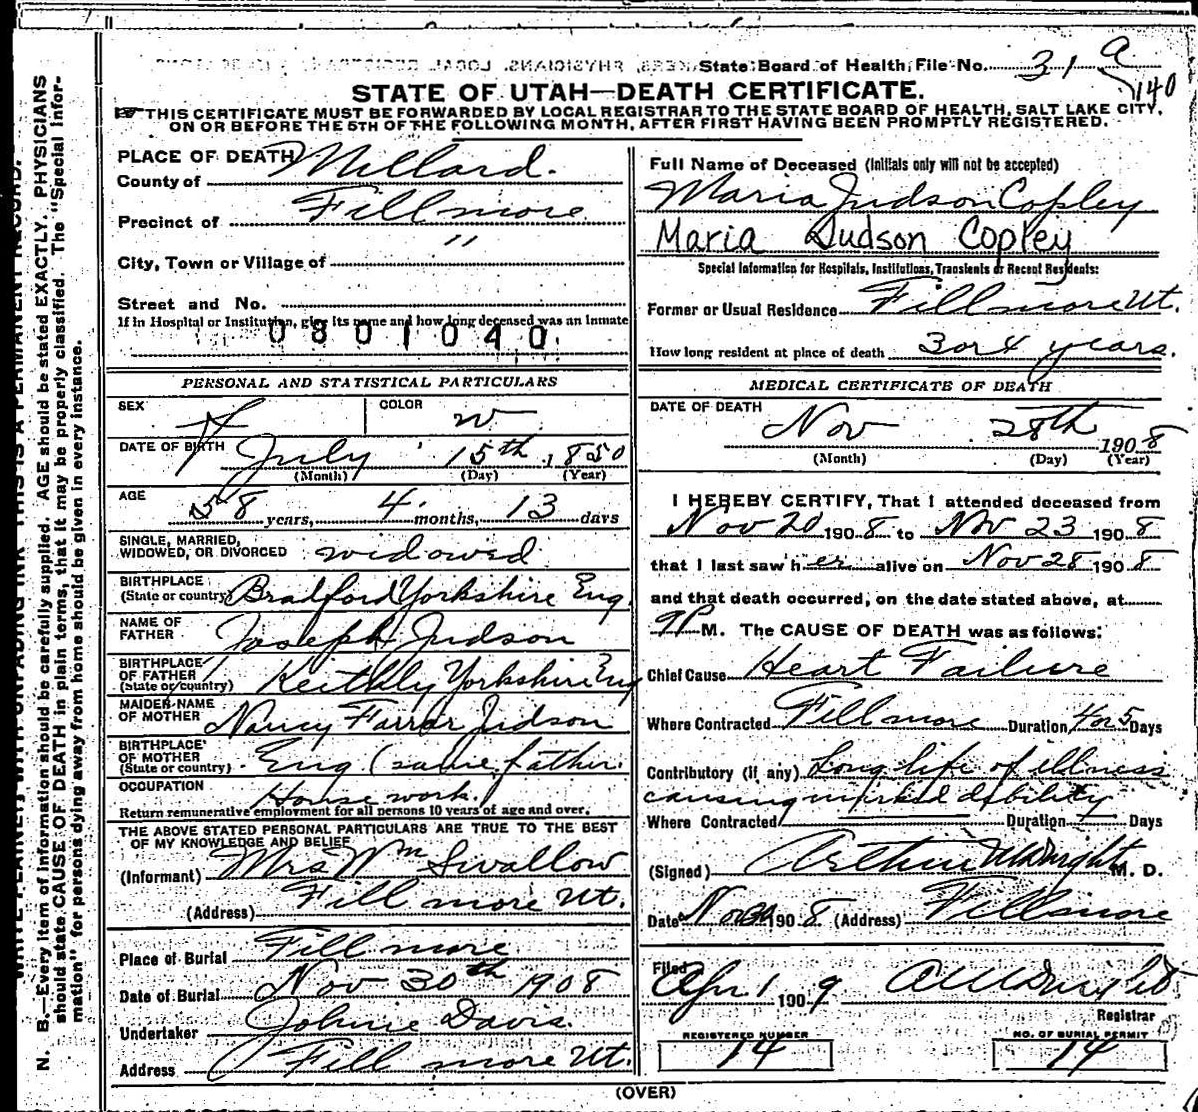 State Board of Health File No. 31 a
140
STATE OF UTAH—DEATH CERTIFICATE.
☞ THIS CERTIFICATE MUST BE FORWARDED BY LOCAL REGISTRAR TO THE STATE BOARD OF HEALTH, SALT LAKE CITY,
ON OR BEFORE THE 5TH OF THE FOLLOWING MONTH, AFTER FIRST HAVING BEEN PROMPTLY REGISTERED.
PLACE OF DEATH
County of Millard.
Precinct of Fillmore
City, Town or Village of "
Street and No.
If in Hospital or Institution, give its name and how long deceased was an inmate
0801040
PERSONAL AND STATISTICAL PARTICULARS
SEX F COLOR W
DATE OF BIRTH July 15th, 1850
(Month) (Day) (Year)
AGE
58 years, 4 months, 13 days
SINGLE, MARRIED,
WIDOWED, OR DIVORCED widowed
BIRTHPLACE
(State or country) Bradford Yorkshire Eng.
NAME OF
FATHER Joseph Judson
BIRTHPLACE
OF FATHER
(State or country) Keithly Yorkshire Eng
MAIDEN NAME
OF MOTHER Nancy Farrar Judson
BIRTHPLACE
OF MOTHER
(State or country) Eng (same father.
OCCUPATION
House work.
Return remunerative employment for all persons 10 years of age and over.
THE ABOVE STATED PERSONAL PARTICULARS ARE TRUE TO THE BEST
OF MY KNOWLEDGE AND BELIEF
(Informant) Mrs Wm Swallow
(Address) Fillmore Ut.
Place of Burial Fillmore
Date of Burial Nov 30th 1908
Undertaker Johnie Davis.
Address Fillmore Ut.
Full Name of Deceased (Initials only will not be accepted)
Maria Judson Copley
Maria Judson Copley
Special Information for Hospitals, Institutions, Transients or Recent Residents:
Former or Usual Residence Fillmore Ut.
How long resident at place of death 3 or 4 years.
MEDICAL CERTIFICATE OF DEATH
DATE OF DEATH
Nov 28th 1908
(Month) (Day) (Year)
I HEREBY CERTIFY, That I attended deceased from
Nov 20 1908 to Nov 23 1908
that I last saw her alive on Nov 28 1908
and that death occurred, on the date stated above, at
9P M. The CAUSE OF DEATH was as follows:
Chief Cause Heart Failure
Where Contracted Fillmore Duration 4 or 5 Days
Contributory (if any) Long life of illness
causing marked debility
Where Contracted Duration Days
(Signed) Arthur M. D.
Date Nov 1908 (Address) Fillmore
Filed
Apr 1 1909
Registrar
REGISTERED NUMBER
14
NO. OF BURIAL PERMIT
14
(OVER)
N. B.—Every item of information should be carefully supplied. AGE should be stated EXACTLY. PHYSICIANS
should state CAUSE OF DEATH in plain terms, that it may be properly classified. The "Special Infor-
mation" for persons dying away from home should be given in every instance.